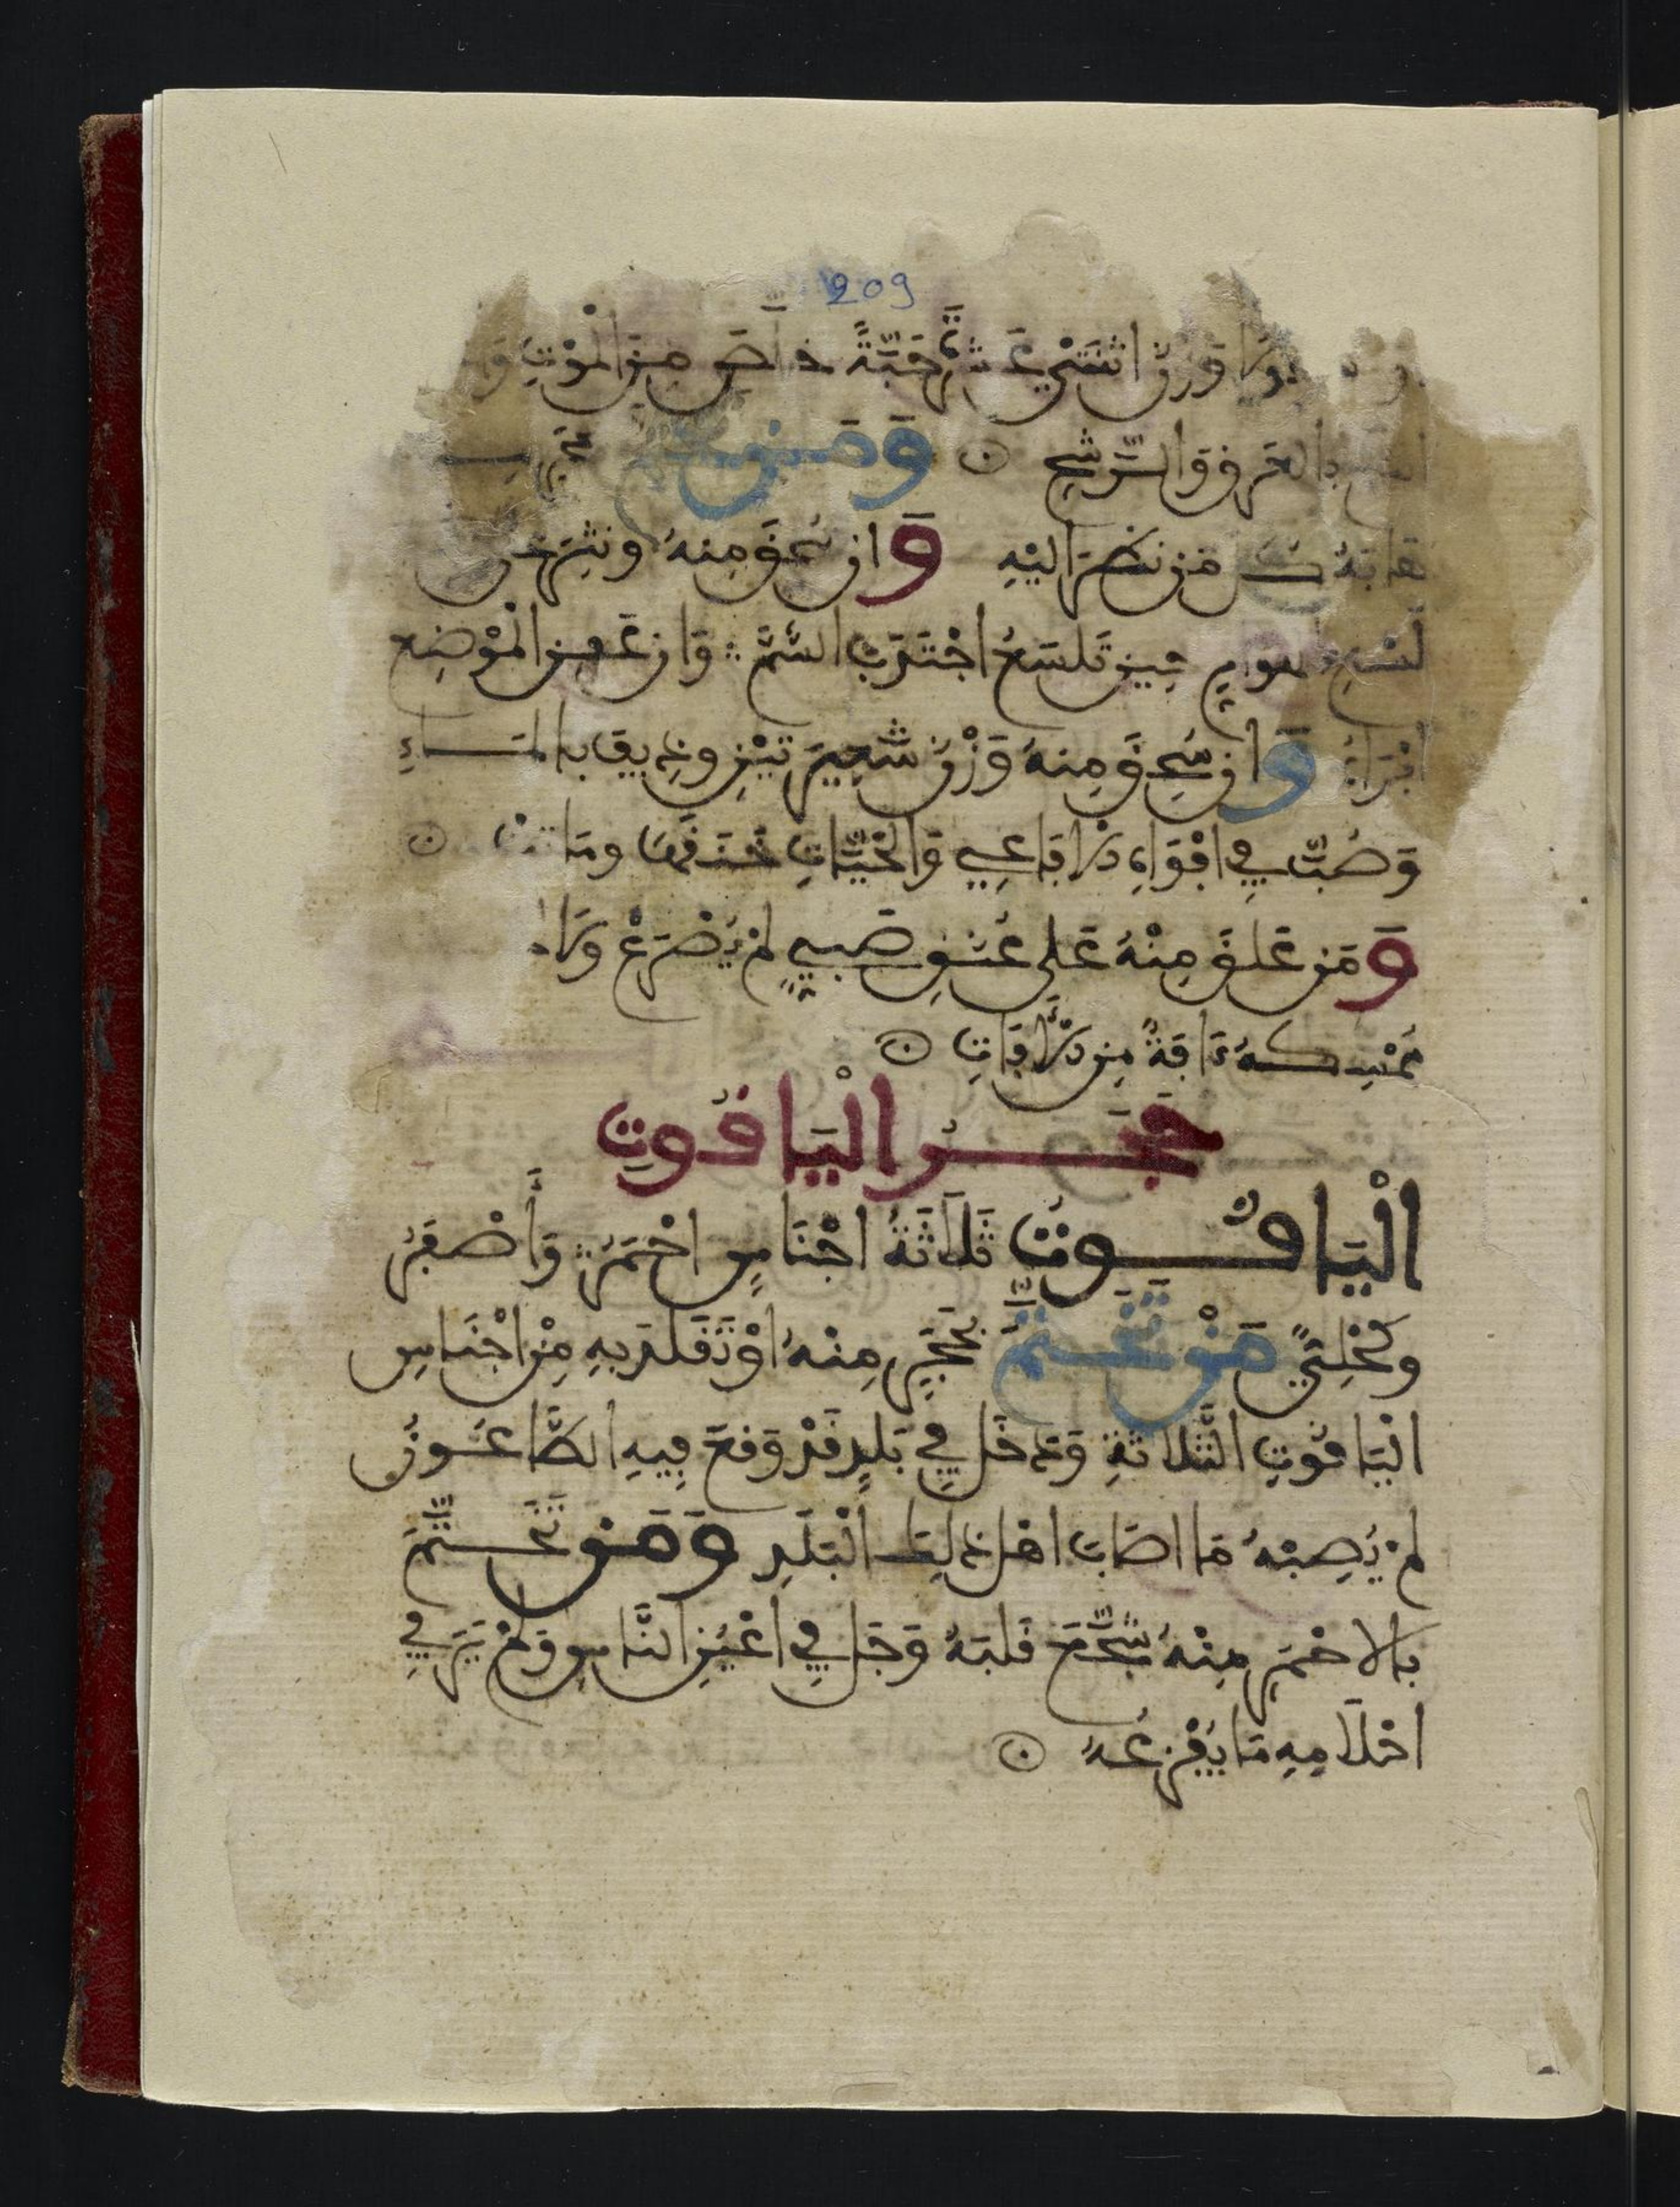 209
وزن اثنتي عشرة حبة خلص من الموت و
بالعرق والرشح ⊙ ومن
هابه كل من نظر اليه وان سحق منه ونثر على
لسع الهوام حين تلسع اجتذب السم وان عفن الموضع
ابراه وان سحق منه وزن شعيرتين وذيق بالماء
وصب في افواه الافاعي والحيات خنقها وماتت ⊙
ومن علق منه على عنق صبي لم يصرع ولا
تمسكه ءافة من الافات ⊙
حجر الياقوت
الياقوت ثلاثة اجناس احمر وأصفر
وكحلي من تختم بحجر منه او تقلد به من اجناس
الياقوت الثلاثة ودخل في بلد قد وقع فيه الطاعون
لم يصبه ما اصاب اهل ذلك البلد ومن تختم
بالاحمر منه شجع قلبه وجل في اعين الناس ولم ير في
احلامه ما يفزعه ⊙